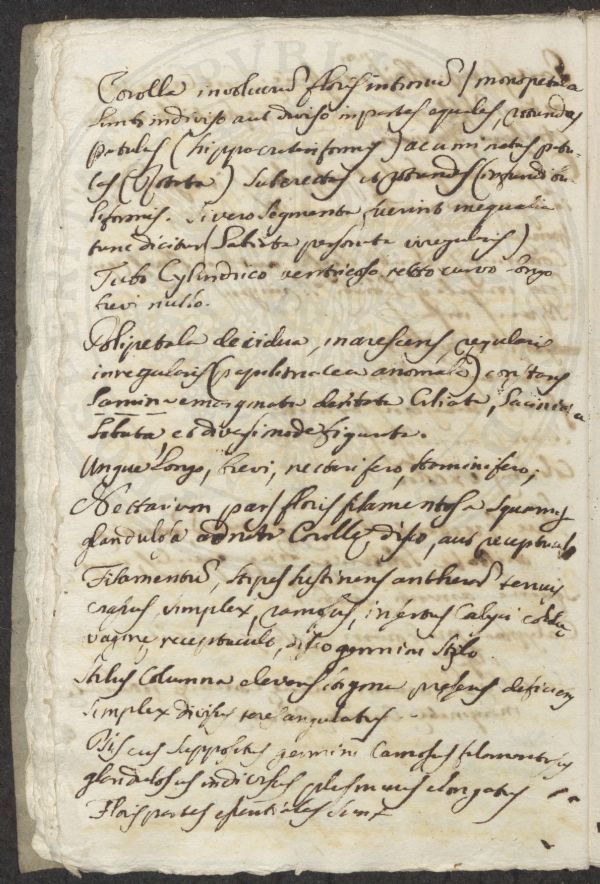 Corolla involucrū floris internū / monopetala
limbo indiviso aut diviso in partes equales, rotundas
patulas (hippocrateriformis) acuminatas patu-
las (Rotata) suberectas et rotundas (infundibu-
liformis. Si vero segmenta fuerint inequalia
tunc dicitur (Labiata personata irregularis)
Tubo Cylindrico ventricoso recto curvo longo
brevi nullo.
Polipetala decidua, marescens, regularis
irregularis (papilionacea anomala) constans
Lamina emarginata dentata Ciliata, Laciniata
Lobata, et diversimode figurata.
Ungue Longo, brevi, nectarifero, staminifero;
Nectarium pars floris filamentosa squamosa
glandulosa adnata Corollę, disco, aut receptaculo
Filamentū, stipes sustinens antheras tenuis
crassus, simplex, ramosus, insertus Calyci corollę
vaginę, receptaculo, disco germini stylo
Stilus Columna elevans stigma presens deficiens
simplex divisus teres angulatus
Discus suppositus germini Carnosus filamentosus
glandulosus indivisus elongatus
Floris partes essentiales sunt